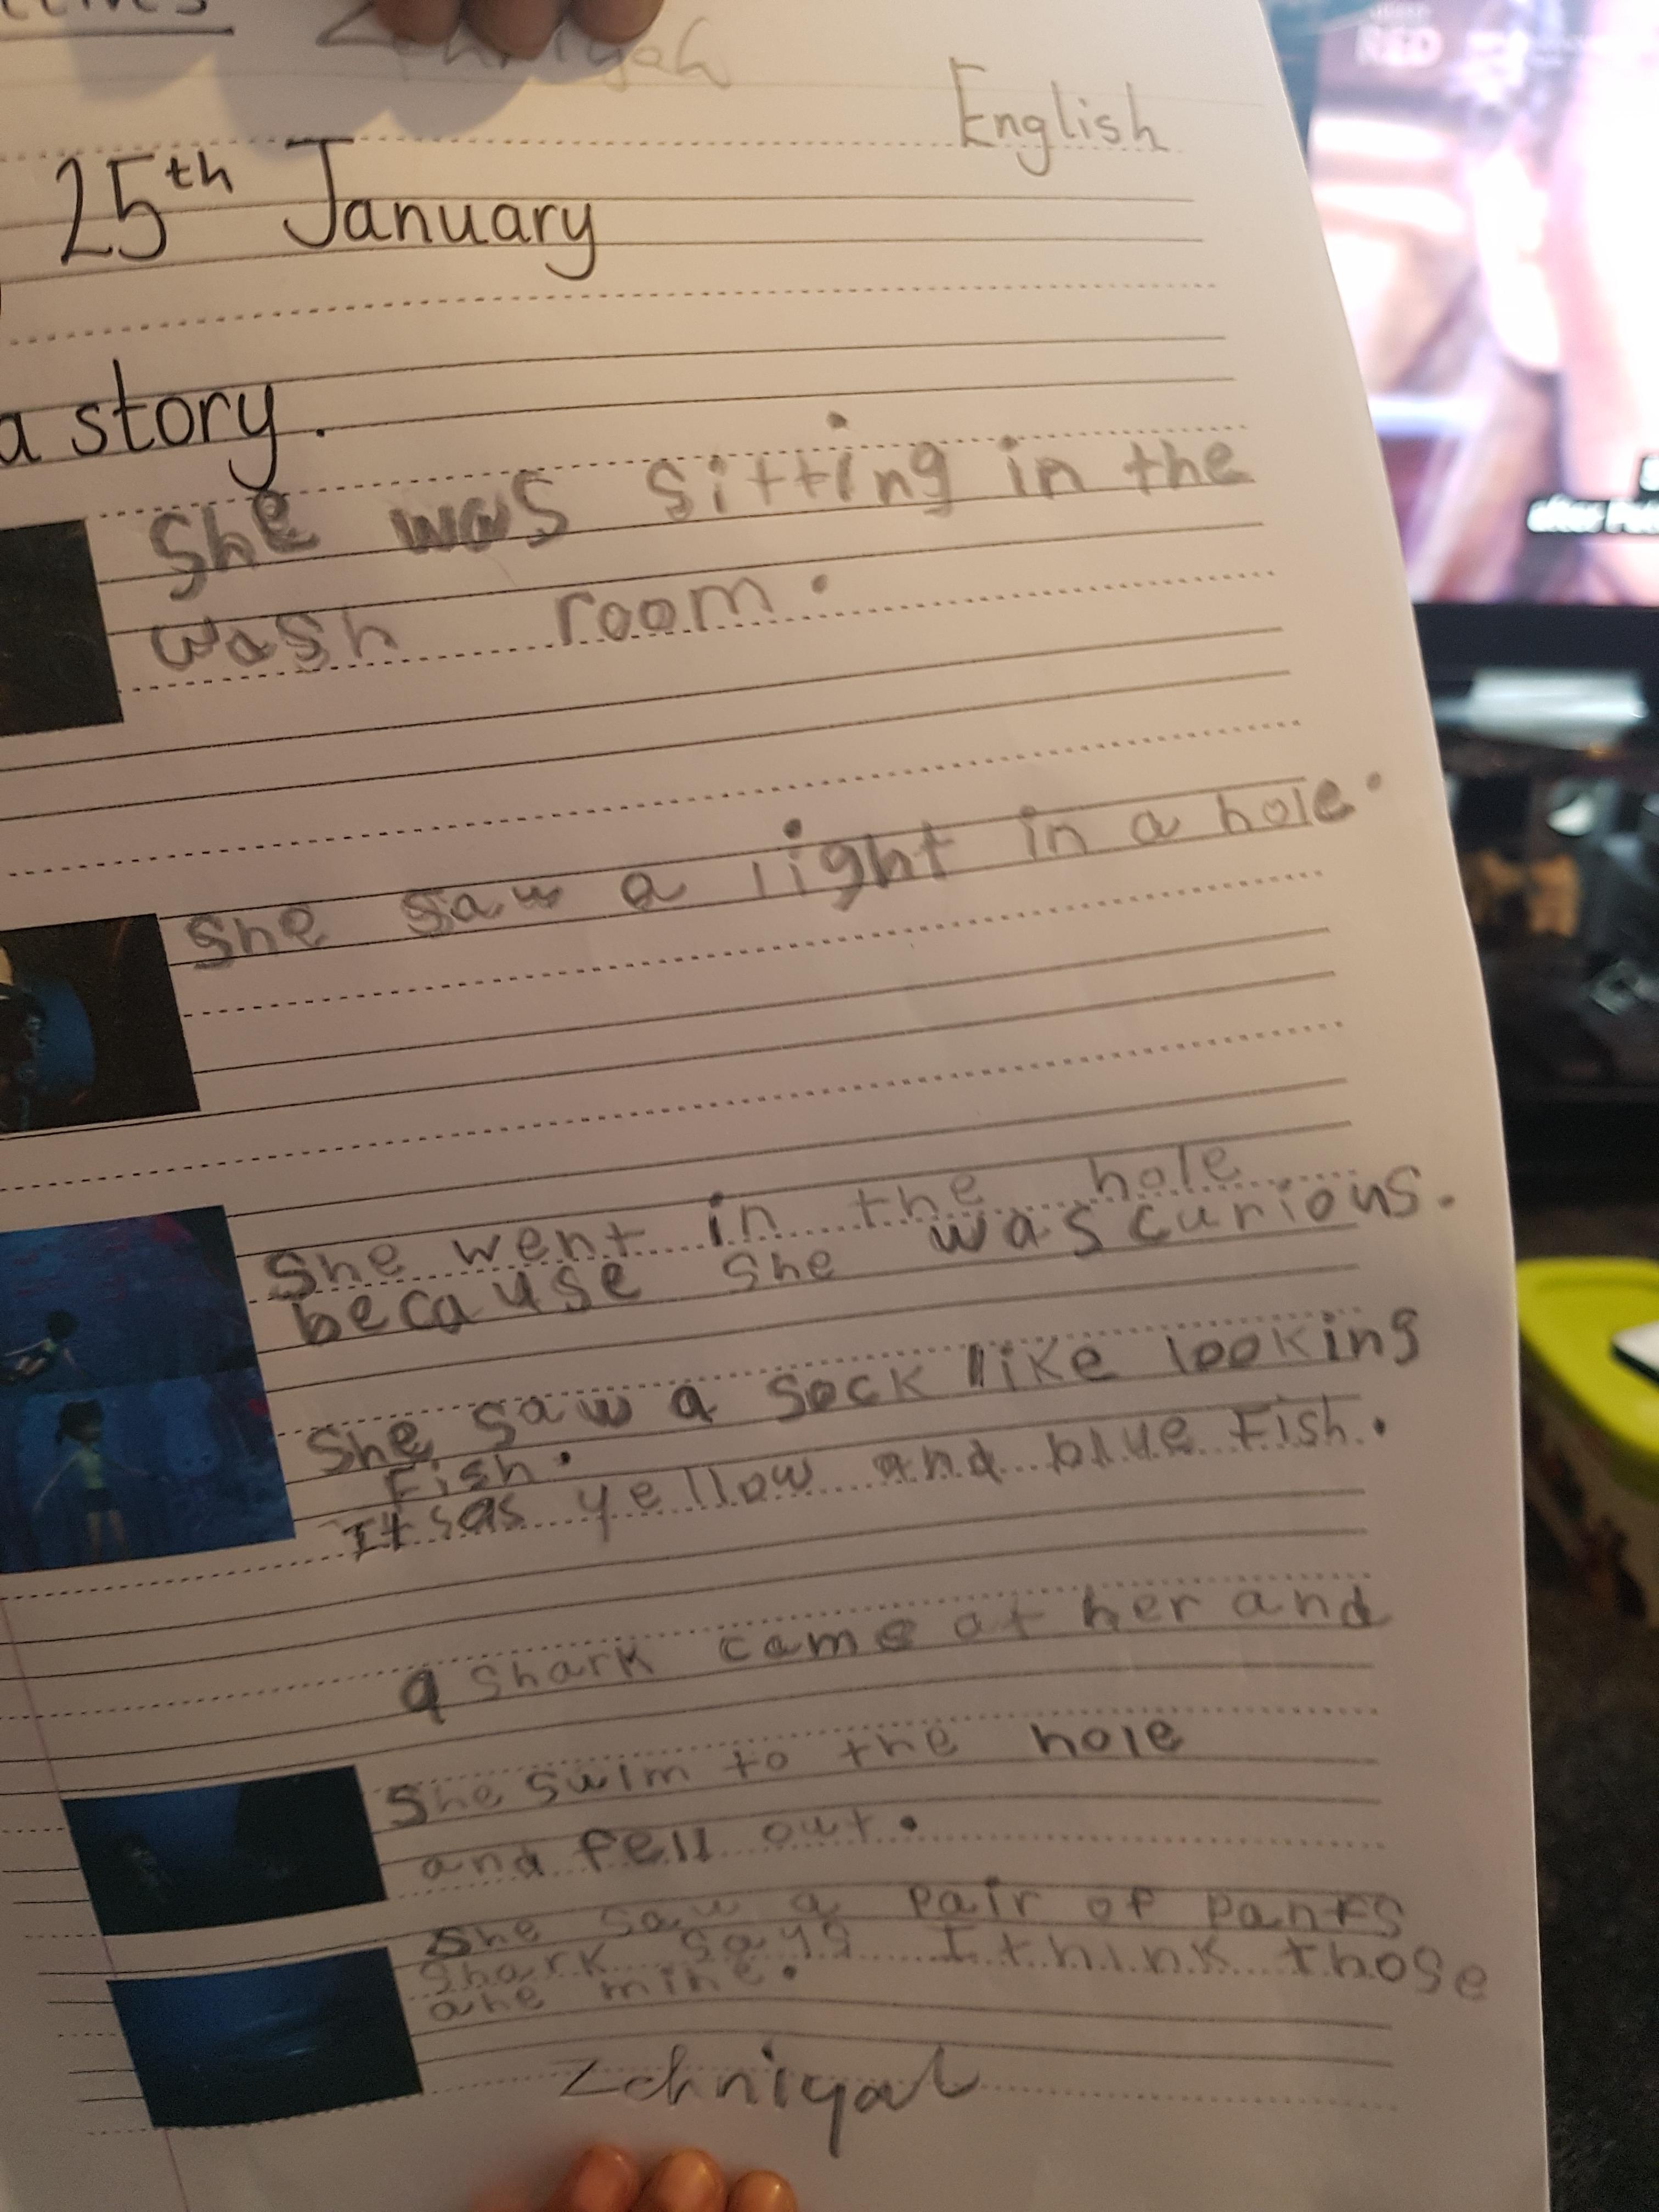 English
25th January
a story.
She was sitting in the
wash room.
She saw a light in a hole.
She went in the hole
because she was curious.
She saw a sock like looking
Fish.
yellow and blue Fish.
a shark came at her and
She swim to the hole
and fell out.
She saw a pair of pants
shark says I think those
are mine.